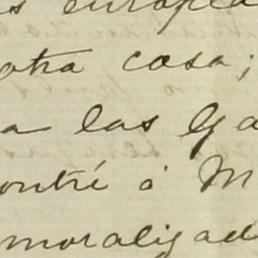 s europea
otra casa;
a las Ga
ontré á M
moralizad